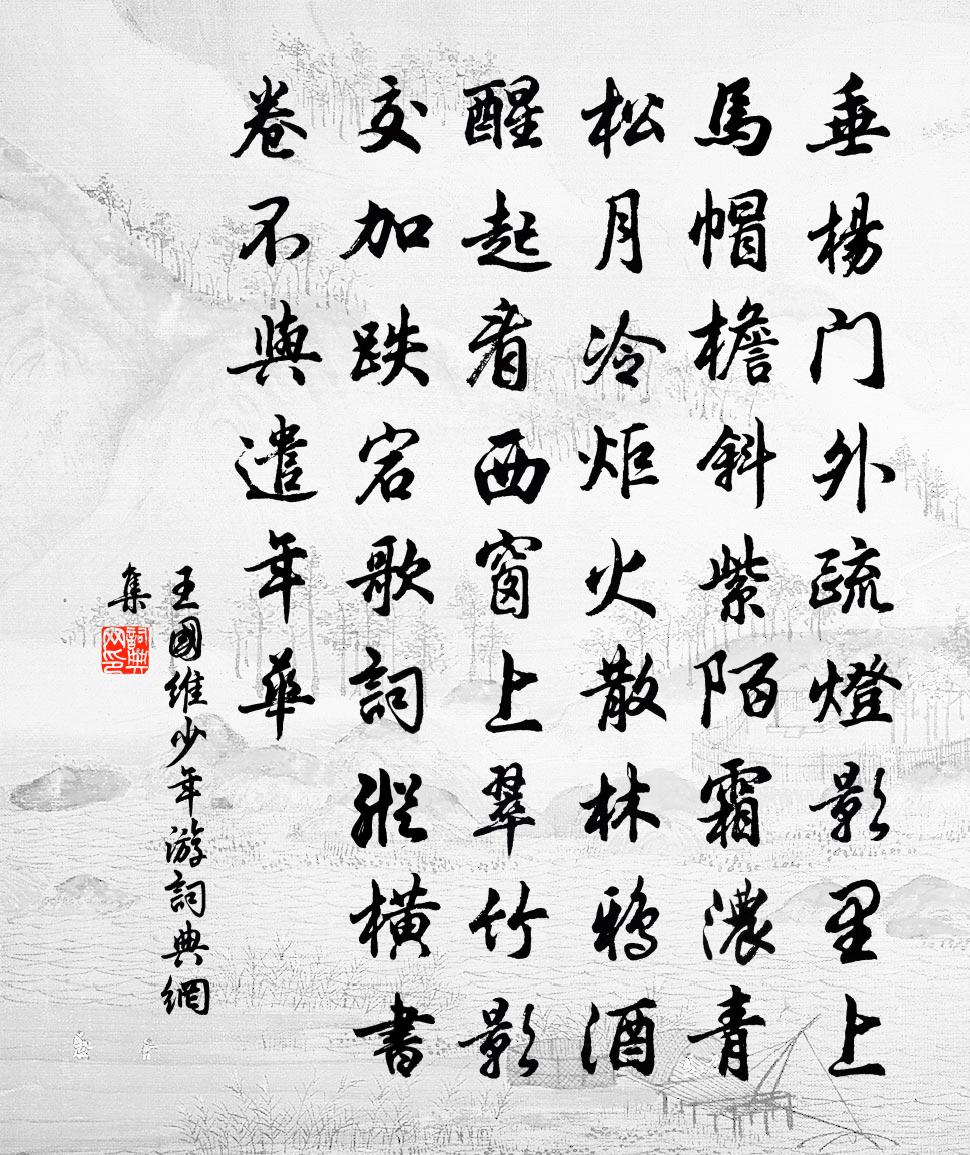 垂楊门外疏燈影里上
馬帽檐斜紫陌霜濃青
松月冷炬火散林鴉酒
醒起看西窗上翠竹影
交加跌宕歌詞縱橫書
卷不與遣年華
王國維少年游詞典網
集
詞典网印